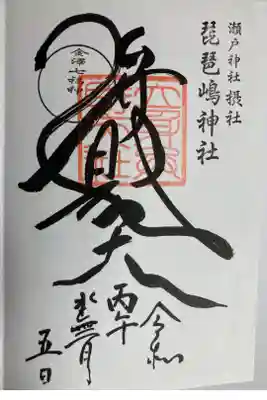 瀬戸神社 摂社
琵琶嶋神社
金澤七福神
令和
丙午
水無月
五日